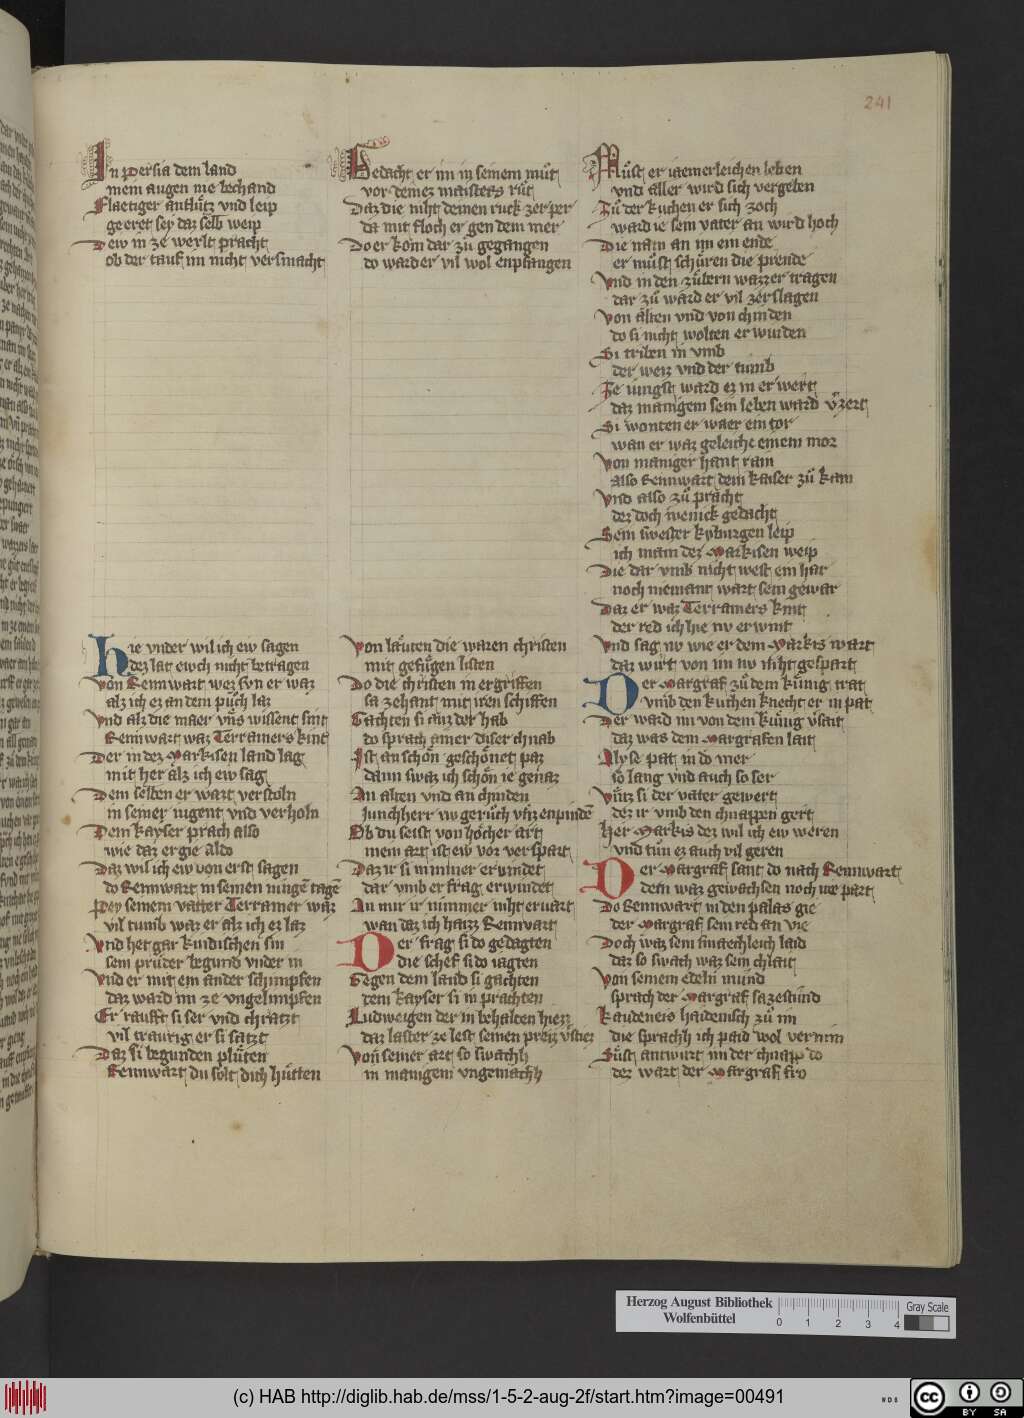 241
In persia dem land
mein augen nie bechand
Flaetiger antlútz vnd leip
geeret sey daz selb weip
Dew in ze werlt pracht
ob der tauf im nicht versmacht
Hie vnder wil ich ew sagen
dez lat ewch nicht betragen
Von Rennwart wez svn er waz
alz ich ez an dem pûch laz
Vnd alz die maer vns wissent sint
Rennwart waz Terramers kint
Der in dez Markisen land lag
mit her alz ich ew sag
Dem selben er wart verstoln
in seiner iugent vnd verholn
Dem kayser prach also
wie daz ergie aldo
Daz wil ich ew von erst sagen
do Rennwart in seinen iungē tagē
Pey seinem vatter Terramer waz
vil tumb waz er alz ich ez laz
Vnd het gar kindischen sin
sein prúder begund vnder in
Vnd er mit ein ander schimpfen
daz ward im ze vngelimpfen
Er raufft si ser vnd chratzt
vil traurig er si satzt
Daz si begunden plûten
Rennwart du solt dich hûtten
Bedacht er im in seinem mût
vor deinez maisters rût
Daz die niht deinen ruck zerper
da mit floch er gen dem mer
Do er kom dar zû gegangen
do ward er vil wol enpfangen
Von lauten die waren christen
mit gefûgen listen
Do die christen in ergriffen
sa zehant mit iren schiffen
Gachten si auz der hab
do sprach ainer diser chnab
Ist an schön geschönet paz
dann swaz ich schön ie genaz
An alten vnd an chinden
Junchherr nv gerûch vns enpindē
Ob du seist von höcher art
mein art ist ew vor verspart
Daz ir si nimmer ervindet
dar vmb er frag erwindet
An mir ir nimmer niht ervart
wan daz ich haizz Rennwart
Der frag si do gedagten
die schef si do iagten
Gegen dem land si gachten
dem kayser si in prachten
Ludweigen der in behalten hiez
daz laster ze lest seinen preiz
Von seiner art so swachh
in manigem vngemachh
Mûst er iaemerleichen leben
vnd aller wird sich vergeben
Zû der kuchen er sich zoch
ward ie sein vater an wird hoch
Die nam an im ein ende
er mûst schûren die prende
Vnd in den zûbern wazzer tragen
dar zû ward er vil zerslagen
Von alten vnd von chinden
do si nicht wolten erwinden
Si triben in vmb
der weiz vnd der tumb
Ze iungst ward ez in erwert
daz manigem sein leben ward vrzert
Si wonten er waer ein tor
wan er waz geleiche einem mor
Von maniger hant ram
also Rennwart dem kaiser zû kam
Vnd also zû pracht
dez doch wenick gedacht
Sein swester kyburgen leip
ich main dez Markisen weip
Die dar vmb nicht west ein har
noch niemant wart sein gewar
Daz er waz Terramers kint
der red ich hie nv erwint
Vnd sag nv wie er dem Markis wart
daz wirt von im nv niht gespart
Der Margraf zû dem kûnig trat
vmb den kuchen knecht er in pat
Der ward im von dem kûnig vrsait
daz was dem Margrafen lait
Alyse pat in do mer
so lang vnd auch so ser
Vntz si der vater gewert
dez ir vmb den chnappen gert
Her Markis dez wil ich ew weren
vnd tûn ez auch vil geren
Der Margraf sant do nach Rennwart
dem waz gewachsen noch nie part
Do Rennwart in den palas gie
der Margraf sein red an vie
Doch waz sein smaechleich laid
daz so swach waz sein chlait
Von seinem edeln mund
sprach der Margraf sa zestund
Kaudeneis haidenisch zû im
die sprachh ich paid wol vernim
Sûst antwurt im der chnapp do
dez wart der Margraf fro
Herzog August Bibliothek
Wolfenbüttel
0 1 2 3 4
Gray Scale
(c) HAB http://diglib.hab.de/mss/1-5-2-aug-2f/start.htm?image=00491
WDB
cc BY SA